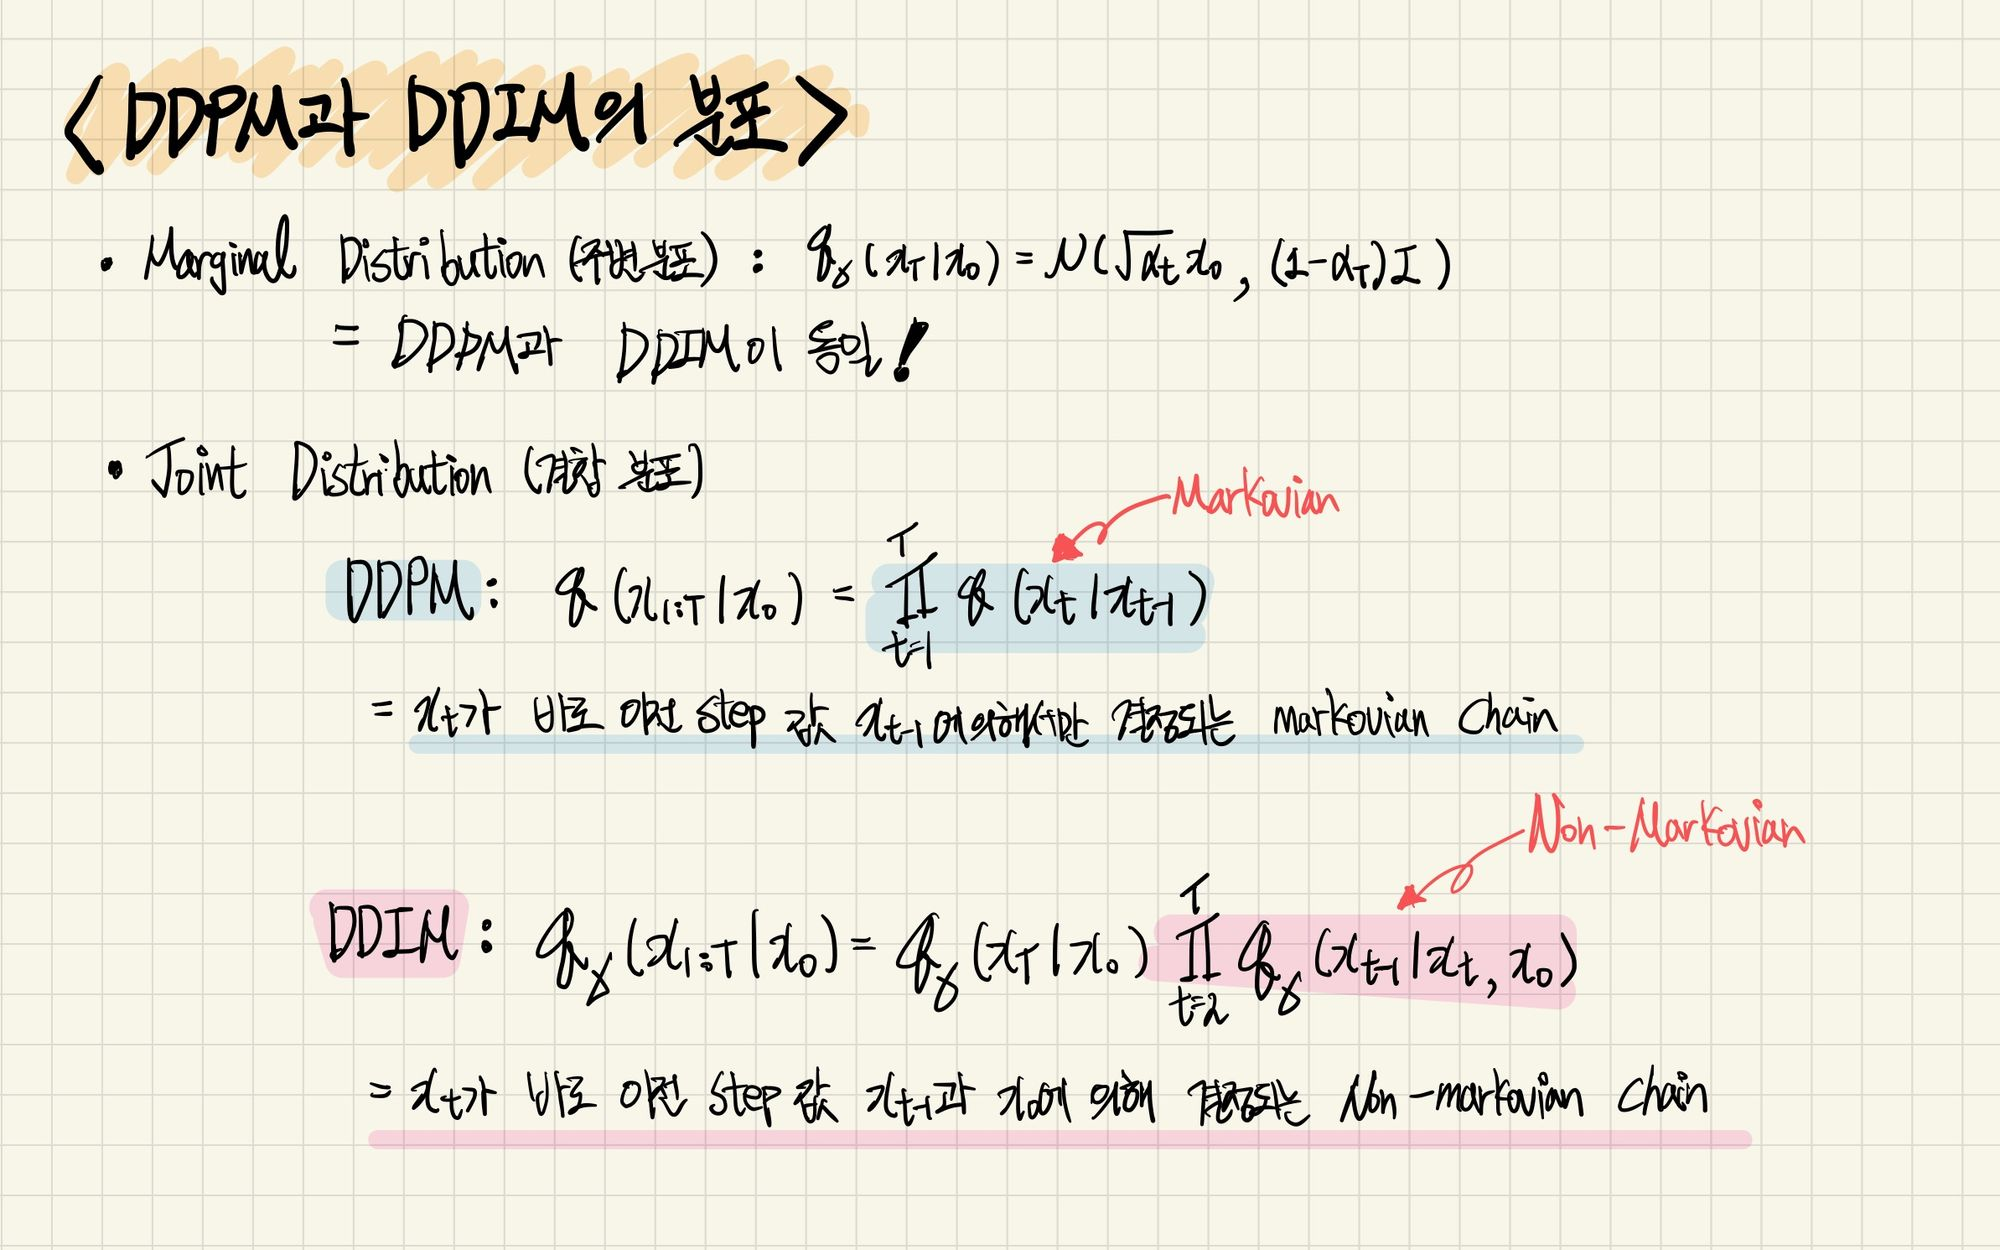 <DDPM과 DDIM의 분포>
• Marginal Distribution (주변분포) : q_γ(x_T|x_0) = N(√α_t x_0, (1-α_T)I)
= DDPM과 DDIM이 동일!
• Joint Distribution (결합 분포)
Markovian
DDPM : q(x_{1:T}|x_0) = ∏_{t=1}^{T} q(x_t|x_{t-1})
= x_t가 바로 이전 step 값 x_{t-1}에 의해서만 결정되는 markovian Chain
Non-Markovian
DDIM : q_γ(x_{1:T}|x_0) = q_γ(x_T|x_0) ∏_{t=2}^{T} q_γ(x_{t-1}|x_t, x_0)
= x_t가 바로 이전 step 값 x_{t-1}과 x_0에 의해 결정되는 Non-markovian Chain